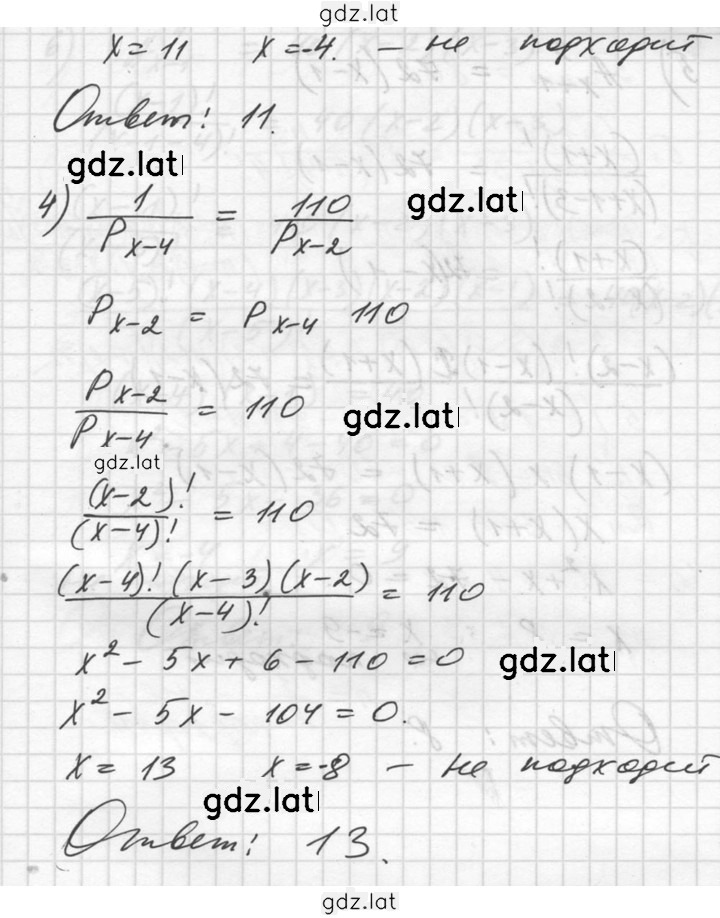 gdz.lat
x = 11 x = -4. – не подходит
Ответ: 11.
gdz.lat
4) 1/P_{x-4} = 110/P_{x-2}
gdz.lat
P_{x-2} = P_{x-4} 110
P_{x-2}/P_{x-4} = 110
gdz.lat
gdz.lat
(x-2)!/(x-4)! = 110
(x-4)! (x-3)(x-2)/(x-4)! = 110
x² - 5x + 6 - 110 = 0
gdz.lat
x² - 5x - 104 = 0.
x = 13 x = -8 – не подходит
gdz.lat
Ответ: 13.
gdz.lat